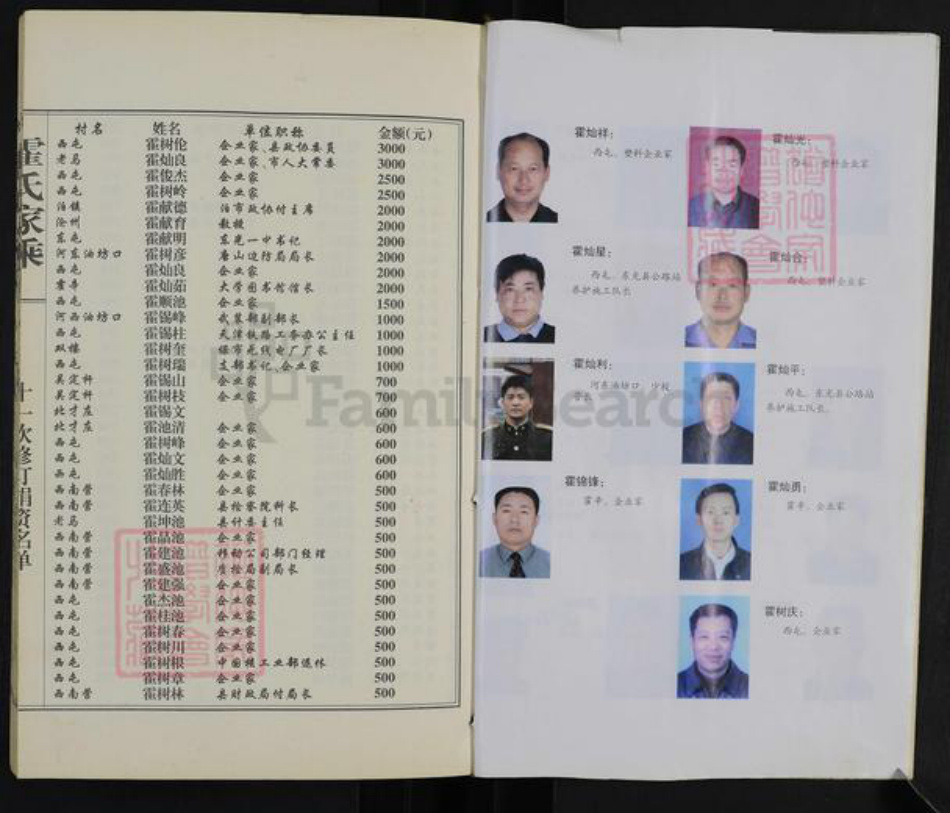 霍氏家乘
十一次修订捐资名单
村名 姓名 单位职称 金额(元)
西屯 霍树伦 企业家、县政协委员 3000
老马 霍灿良 企业家、市人大常委 3000
西屯 霍俊杰 企业家 2500
西屯 霍树岭 企业家 2500
泊镇 霍献德 泊市政协付主席 2000
沧州 霍献育 教授 2000
东屯 霍献明 东光一中书记 2000
河东油坊口 霍树彦 唐山边防局局长 2000
西屯 霍灿良 企业家 2000
霍辛 霍灿茹 大学图书馆馆长 2000
西屯 霍顺池 企业家 1500
河西油坊口 霍锡峰 武装部副部长 1000
西屯 霍锡柱 天津铁路工务办公主任 1000
双楼 霍树奎 保市无线电厂厂长 1000
西屯 霍树瑞 支部书记、企业家 1000
吴定杆 霍锡山 企业家 700
吴定杆 霍树枝 企业家 700
北才庄 霍锡文 600
北才庄 霍池清 企业家 600
西屯 霍树峰 企业家 600
西屯 霍灿文 企业家 600
西屯 霍灿胜 企业家 600
西南营 霍春林 企业家 500
西南营 霍连英 县检察院科长 500
老马 霍坤池 县计委主任 500
西南营 霍晶池 企业家 500
西南营 霍建池 移动公司部门经理 500
西南营 霍盛池 质检局副局长 500
西南营 霍建强 企业家 500
西屯 霍杰池 企业家 500
西屯 霍桂池 企业家 500
西屯 霍树春 企业家 500
西屯 霍树川 企业家 500
西屯 霍树根 中国核工业部退休 500
西屯 霍树章 企业家 500
西南营 霍树林 县财政局付局长 500
霍灿祥：
西屯、塑料企业家
霍灿光：
西屯、塑料企业家
霍灿星：
西屯、东光县公路站
养护施工队长
霍灿合：
西屯、塑料企业家
霍灿利：
河东油坊口、少校
营长
霍灿平：
西屯、东光县公路站
养护施工队长、
霍锦锋：
霍辛、企业家
霍灿勇：
霍辛、企业家
霍树庆：
西屯、企业家
FamilySearch